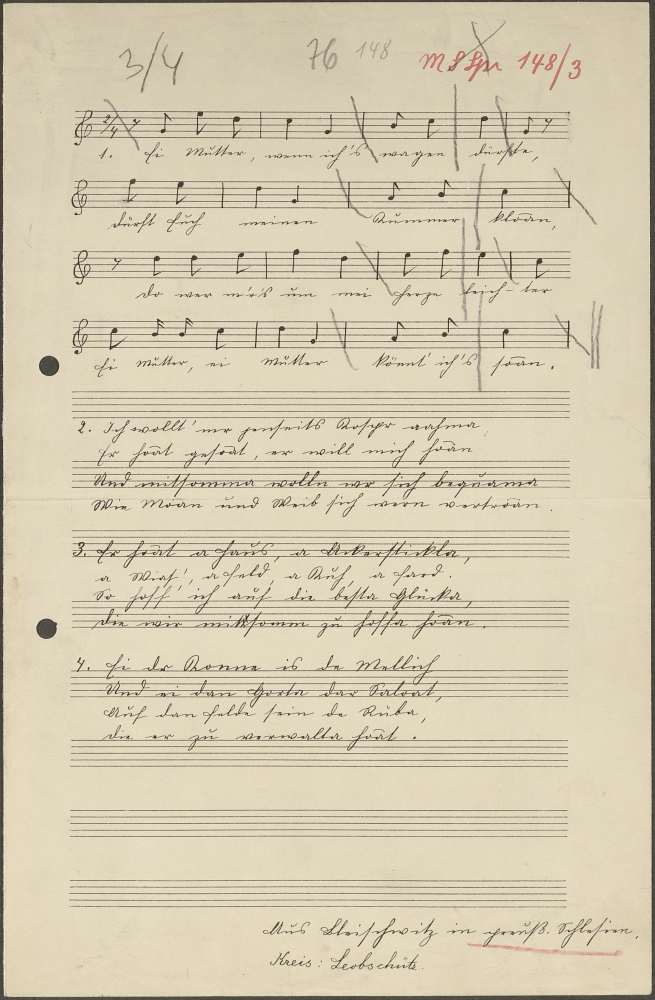 3/4 76 148 MS Spr 148/3
2/4
1. Ei Mutter, wenn ich's wagen dürfte,
dürft Euch meinen Kummer kloan,
Do wer mr's um mei Herze leich-ter
Ei Mutter, ei Mutter könnt' ich's soan.
2. Ich wollt' mr jenseits Kospr nahma,
Er hoat gesoat, er will mich hoan
Und mitsomma wolln wr sich bequama
Wie Moan und Weib sich wern vertroan.
3. Er hoat a Haus, a Ackerstickla,
a Wias', a Feld, a Kuh, a Fard.
So hoff' ich auf die besta Glücka,
Die wir mittsomm zu hoffa hoan.
4. Ei dr Konne is de Mellich
Und ei dan Gorta dar Saloat,
Auf dan Felde sein de Ruba,
Die er zu verwalta hoat.
Aus Bleischwitz in preuß. Schlesien,
Kreis: Leobschütz.